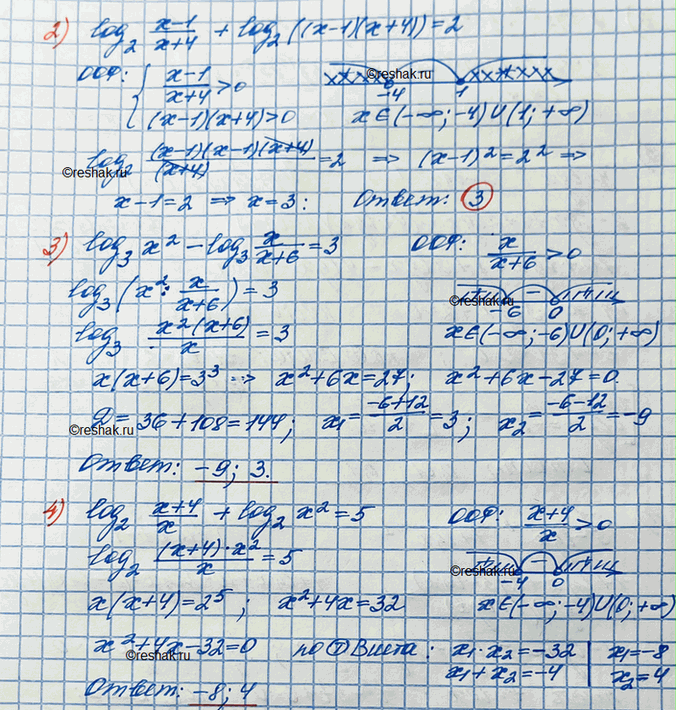 2) log₂ (x-1)/(x+4) + log₂((x-1)(x+4)) = 2
ООФ: { (x-1)/(x+4) > 0
(x-1)(x+4) > 0
©reshak.ru
-4 1
x∈(-∞;-4)∪(1;+∞)
log₂ (x-1)(x-1)(x+4)/(x+4) = 2 ⇒ (x-1)² = 2² ⇒
©reshak.ru
x-1=2 ⇒ x=3: Ответ: 3
3) log₃ x² - log₃ x/(x+6) = 3 ООФ: x/(x+6) > 0
log₃(x² : x/(x+6)) = 3
©reshak.ru
+ - +
-6 0
log₃ x²(x+6)/x = 3 x∈(-∞;-6)∪(0;+∞)
x(x+6)=3³ ⇒ x²+6x=27; x²+6x-27=0.
D=36+108=144; x₁=(-6+12)/2=3; x₂=(-6-12)/2=-9
©reshak.ru
Ответ: -9; 3.
4) log₂ (x+4)/x + log₂ x² = 5 ООФ: (x+4)/x > 0
log₂ (x+4)·x²/x = 5
©reshak.ru
+ - +
-4 0
x(x+4)=2⁵; x²+4x=32 x∈(-∞;-4)∪(0;+∞)
x²+4x-32=0 по Т Виета: x₁·x₂=-32 | x₁=-8
©reshak.ru
x₁+x₂=-4 | x₂=4
Ответ: -8; 4